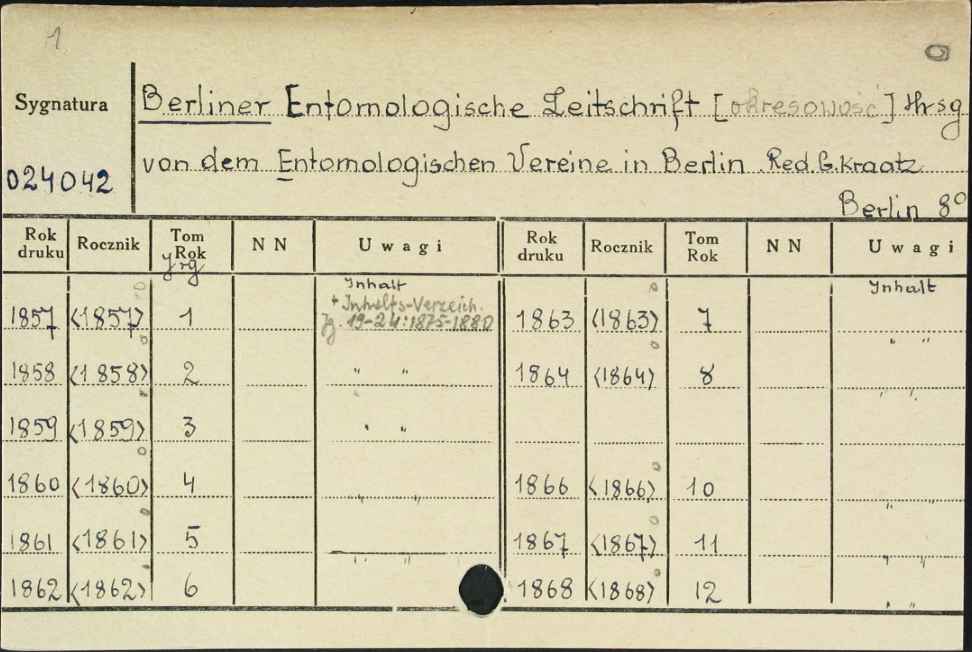 1
Sygnatura
024042
Berliner Entomologische Zeitschrift [okresowość] Hrsg
von dem Entomologischen Vereine in Berlin. Red. G. Kraatz.
Berlin 8°
Rok druku | Rocznik | Tom Rok Jrg | NN | Uwagi | Rok druku | Rocznik | Tom Rok | NN | Uwagi
Inhalt | Inhalt
+ Inhalts-Verzeich.
1857 | <1857> | 1 | Jg. 19-24: 1875-1880 | 1863 | <1863> | 7 | " "
1858 | <1858> | 2 | " " | 1864 | <1864> | 8 | " "
1859 | <1859> | 3 | " "
1860 | <1860> | 4 | " " | 1866 | <1866> | 10 | " "
1861 | <1861> | 5 | " " | 1867 | <1867> | 11 | " "
1862 | <1862> | 6 | 1868 | <1868> | 12 | " "